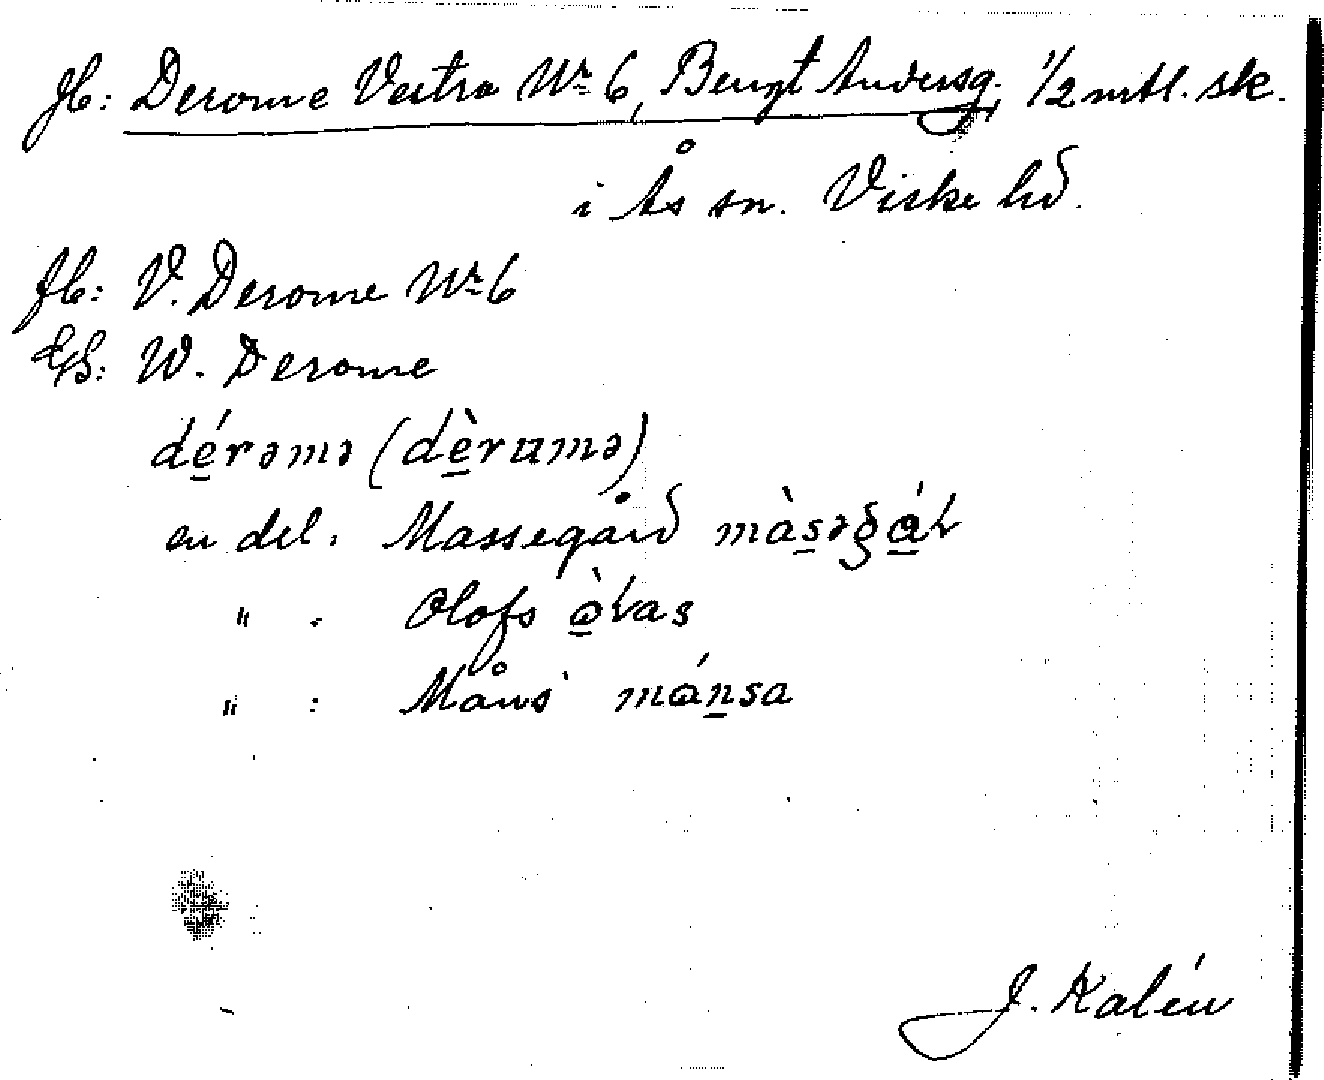 Jb: Derome Västra Nr 6, Bengt Andersg. 1/2 mtl. sk.
i Ås sn. Viske hd.
Jb: V. Derome Nr 6
GS: W. Derome
dérəmə (dèrumə)
en del: Massegård màsəgár
" : Olofs òlas
" : Måns' mánsa
J. Kalén